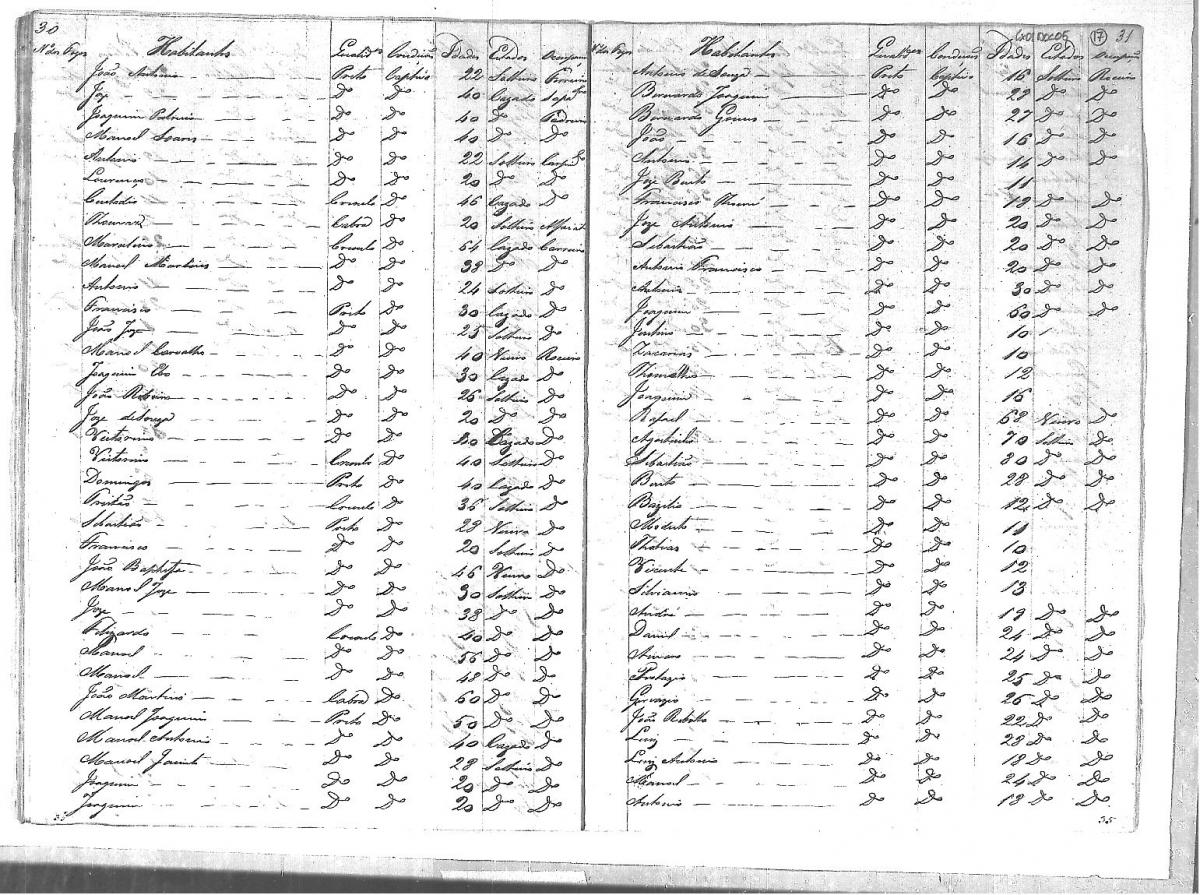 30
Nº dos Fogos Habitantes Qualidᵉˢ Condiçois Idades Estados Ocupaçam
João Antonio Preto Captivo 22 Solteiro
Joze Dº Dº 40 Cazado Sapatrº
Joaquim Dº Dº 40 Dº Pedreiro
Manoel Dº Dº 40 Dº Dº
Antonio Dº Dº 22 Solteiro
Lourenço Dº Dº 20 Dº Dº
Custodio Crioulo Dº 46 Cazado Dº
Cabra Dº 20 Solteiro
Crioulo Dº 54 Cazado Carreiro
Manoel Martins Dº Dº 38 Dº Dº
Antonio Dº Dº 24 Solteiro Dº
Francisco Preto Dº 30 Cazado Dº
João Joze Dº Dº 25 Solteiro Dº
Manoel Carvalho Dº Dº 40 Viuvo Roceiro
Joaquim Dº Dº 30 Cazado Dº
João Ribeiro Dº Dº 26 Solteiro Dº
Joze de Souza Dº Dº 20 Dº Dº
Victorino Dº Dº Cazado Dº
Victorino Crioulo Dº 40 Solteiro Dº
Domingos Preto Dº 40 Cazado Dº
Crioulo Dº 36 Solteiro Dº
Sebastião Preto Dº 28 Viuvo Dº
Francisco Dº Dº 20 Solteiro Dº
João Baptista Dº Dº 46 Viuvo Dº
Manoel Joze Dº Dº 30 Solteiro Dº
Joze Dº Dº 38 Dº Dº
Felizardo Crioulo Dº 40 Dº Dº
Manoel Dº Dº 56 Dº Dº
Manoel Dº Dº 48 Dº Dº
João Martins Cabra Dº 60 Dº Dº
Manoel Joaquim Preto Dº 50 Dº Dº
Manoel Antonio Dº Dº 40 Cazado Dº
Manoel Jacinto Dº Dº 28 Solteiro Dº
Joaquim Dº Dº 20 Dº Dº
Joaquim Dº Dº 20 Dº Dº
35
17 31
Nº dos Fogos Habitantes Qualidᵉˢ Condiçois Idades Estados Ocupaçam
Antonio de Souza Preto Captivo 16 Solteiro Roceiro
Bernardo Joaquim Dº Dº 22 Dº Dº
Bernardo Gomes Dº Dº 27 Dº Dº
João Dº Dº 16 Dº Dº
Antonio Dº Dº 14 Dº Dº
Joze Bento Dº Dº 11
Francisco Dº Dº 12 Dº Dº
Joze Antonio Dº Dº 20 Dº Dº
Sebastião Dº Dº 20 Dº Dº
Antonio Francisco Dº Dº 20 Dº Dº
Antonio Dº Dº 30 Dº Dº
Joaquim Dº Dº 60 Dº Dº
Justino Dº Dº 10
Zacarias Dº Dº 10
Dº Dº 12
Joaquim Dº Dº 16
Rafael Dº Dº 68 Viuvo Dº
Agostinho Dº Dº 70 Solteiro Dº
Sebastião Dº Dº 30 Dº Dº
Bento Dº Dº 28 Dº Dº
Bazilio Dº Dº 12 Dº Dº
Modesto Dº Dº 11
Dº Dº 10
Vicente Dº Dº 12
Silviano Dº Dº 13
André Dº Dº 19 Dº Dº
Daniel Dº Dº 24 Dº Dº
Dº Dº 24 Dº Dº
Protazio Dº Dº 25 Dº Dº
Gervazio Dº Dº 26 Dº Dº
João Rebollo Dº Dº 22 Dº Dº
Luiz Dº Dº 28 Dº Dº
Luiz Antonio Dº Dº 18 Dº Dº
Manoel Dº Dº 24 Dº Dº
Antonio Dº Dº 18 Dº Dº
35